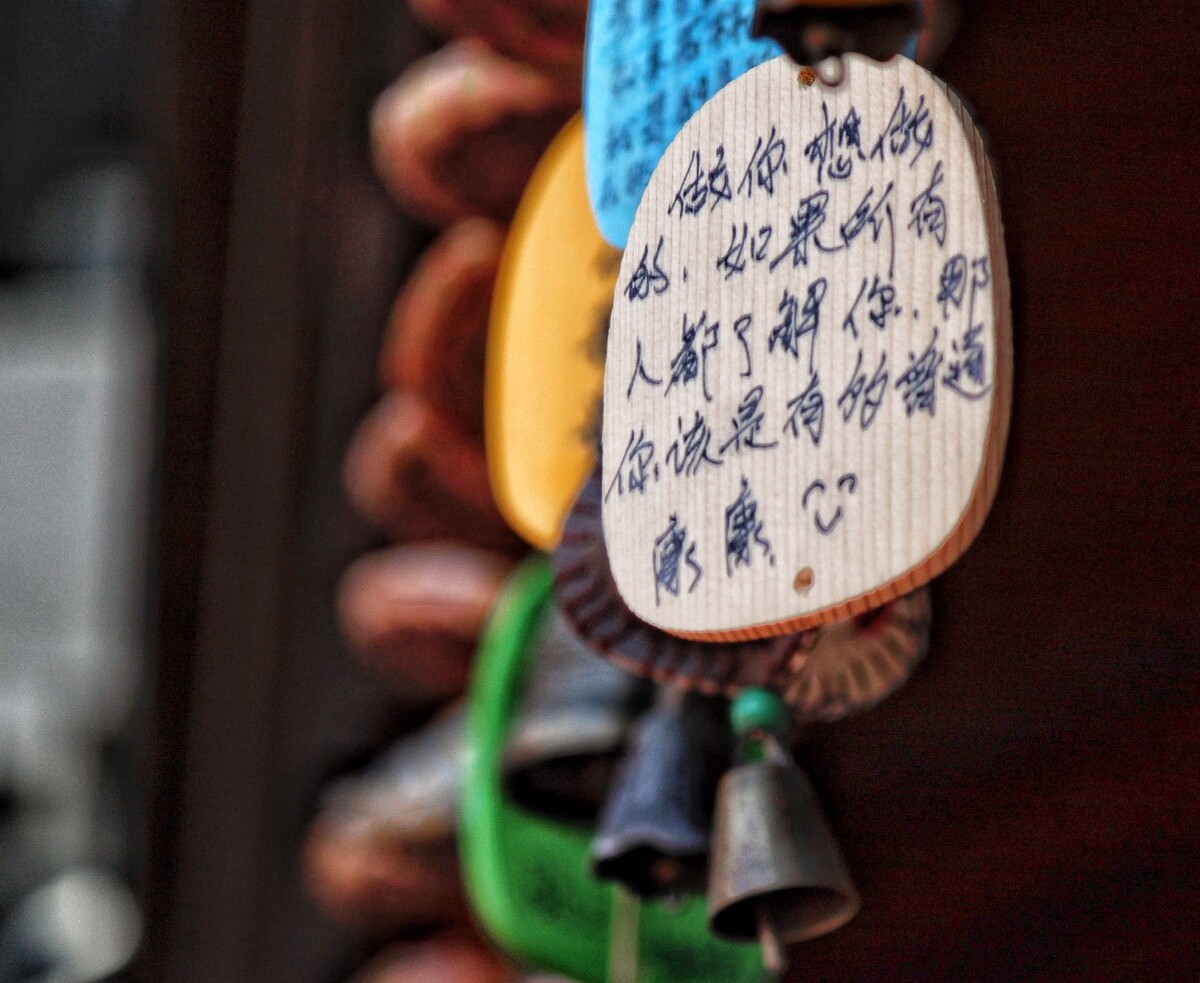 做你想做
的.如果所有
人都了解你.那
你该是有的普通
康康